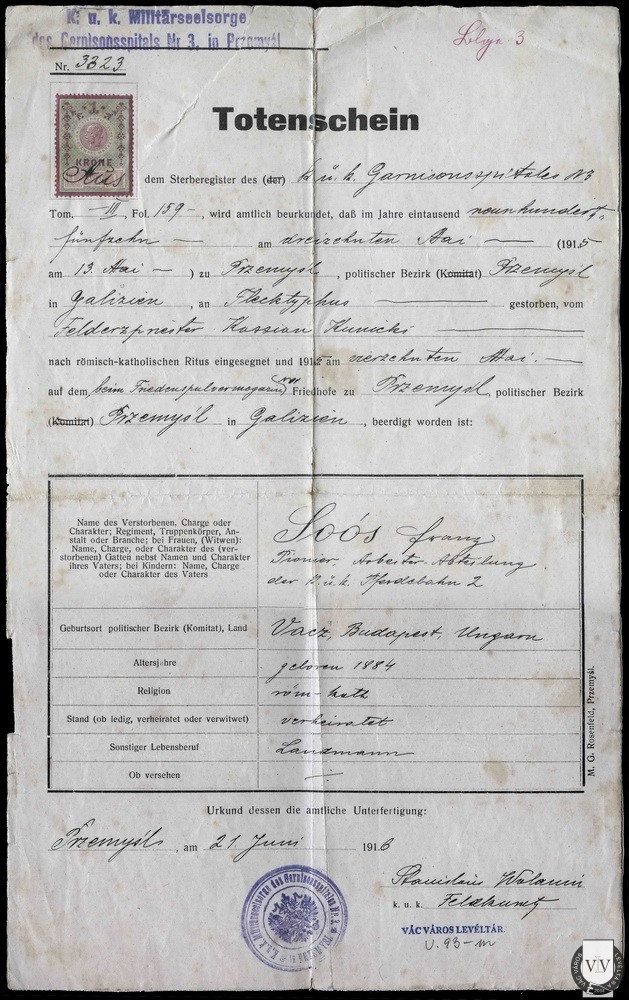 K. u. k. Militärseelsorge
des Garnisonsspitals Nr 3. in Przemyśl
3
Nr. 3323
1
KRONE
Totenschein
Aus dem Sterberegister des (der) k. u. k. Garnisonsspitales N3
Tom. III, Fol. 159, wird amtlich beurkundet, daß im Jahre eintausend neunhundert-
fünfzehn — am dreizehnten Mai — (1915
am 13. Mai —) zu Przemysl, politischer Bezirk (Komitat) Przemysl
in Galizien, an Flecktyphus — gestorben, vom
Felderzpriester Kassian Kunicki
nach römisch-katholischen Ritus eingesegnet und 1915 am vierzehnten Mai. —
auf dem beim Friedenspulvermagazin Friedhofe zu Przemysl, politischer Bezirk
(Komitat) Przemysl in Galizien, beerdigt worden ist:
Name des Verstorbenen, Charge oder
Charakter; Regiment, Truppenkörper, An-
stalt oder Branche; bei Frauen, (Witwen):
Name, Charge, oder Charakter des (ver-
storbenen) Gatten nebst Namen und Charakter
ihres Vaters; bei Kindern: Name, Charge
oder Charakter des Vaters
Soós Franz
Pionier Arbeiter Abteilung
der k. u. k. Pferdebahn 2
Geburtsort politischer Bezirk (Komitat), Land
Vacz, Budapest, Ungarn
Altersjahre
geboren 1884
Religion
röm-kath
Stand (ob ledig, verheiratet oder verwitwet)
verheiratet
Sonstiger Lebensberuf
Landmann
Ob versehen
M. G. Rosenfeld, Przemyśl.
Urkund dessen die amtliche Unterfertigung:
Przemyśl, am 21 Juni 1916
Stanislaus
k. u. k. Feldkurat
VÁC VÁROS LEVÉLTÁR
V. 93-m
VV